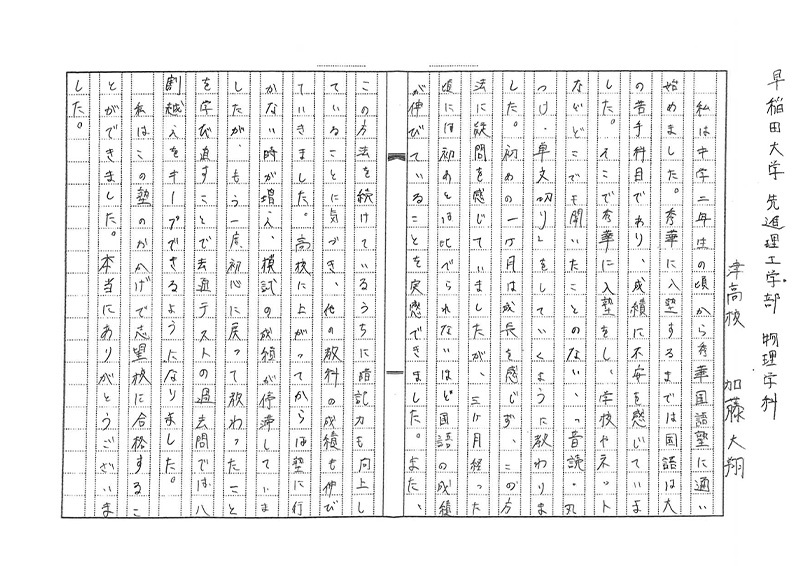 早稲田大学 先進理工学部 物理学科
津高校 加藤大翔
私は中学二年生の頃から秀華国語塾に通い
始めました。秀華に入塾するまでは国語は大
の苦手科目であり、成績に不安を感じていま
した。そこで秀華に入塾をし、学校やネット
などどこでも聞いたことのない、「音読・丸
つけ・単文切り」をしていくように教わりま
した。初めの一ヶ月は成長を感じず、この方
法に疑問を感じていましたが、三ヶ月経った
頃には初めとは比べられないほど国語の成績
が伸びていることを実感できました。また、
この方法を続けているうちに暗記力も向上し
ていることに気づき、他の教科の成績も伸び
ていきました。高校に上がってからは塾に行
かない時が増え、模試の成績が停滞していま
したが、もう一度初心に戻って教わったこと
を学び直すことで去近テストの過去問では八
割越えをキープできるようになりました。
私はこの塾のおかげで志望校に合格するこ
とができました。本当にありがとうございま
した。